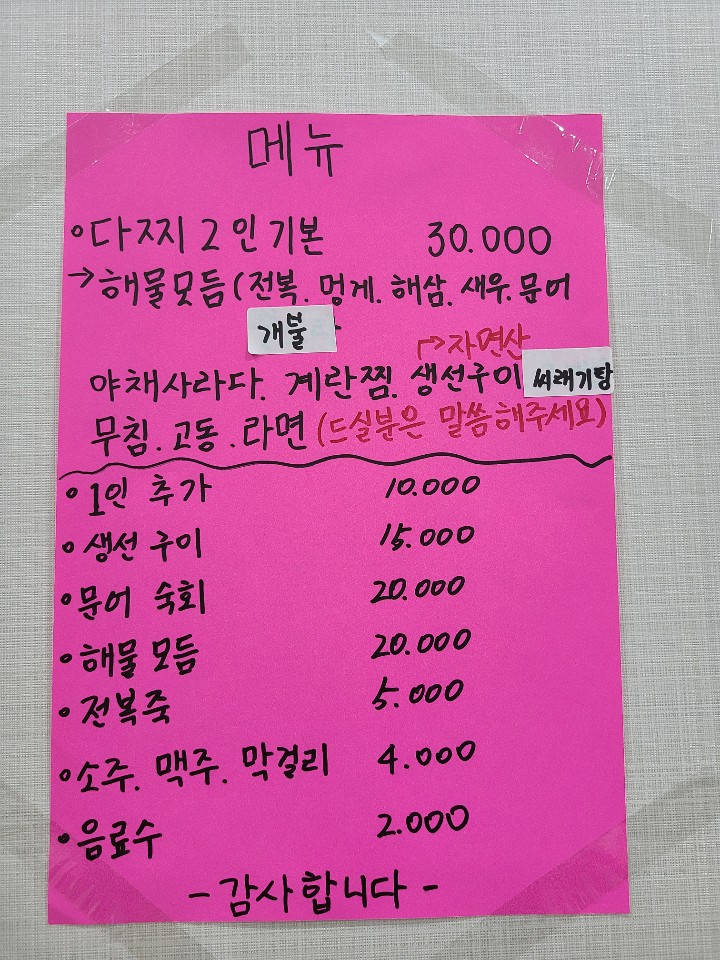 메뉴
• 다찌 2인 기본 30.000
→ 해물모듬 (전복. 멍게. 해삼. 새우. 문어
개불
→ 자연산
야채사라다. 계란찜. 생선구이 씨래기탕
무침. 고동. 라면 (드실분은 말씀해주세요)
• 1인 추가 10.000
• 생선구이 15.000
• 문어 숙회 20.000
• 해물 모듬 20.000
• 전복죽 5.000
• 소주. 맥주. 막걸리 4.000
• 음료수 2.000
- 감사합니다 -